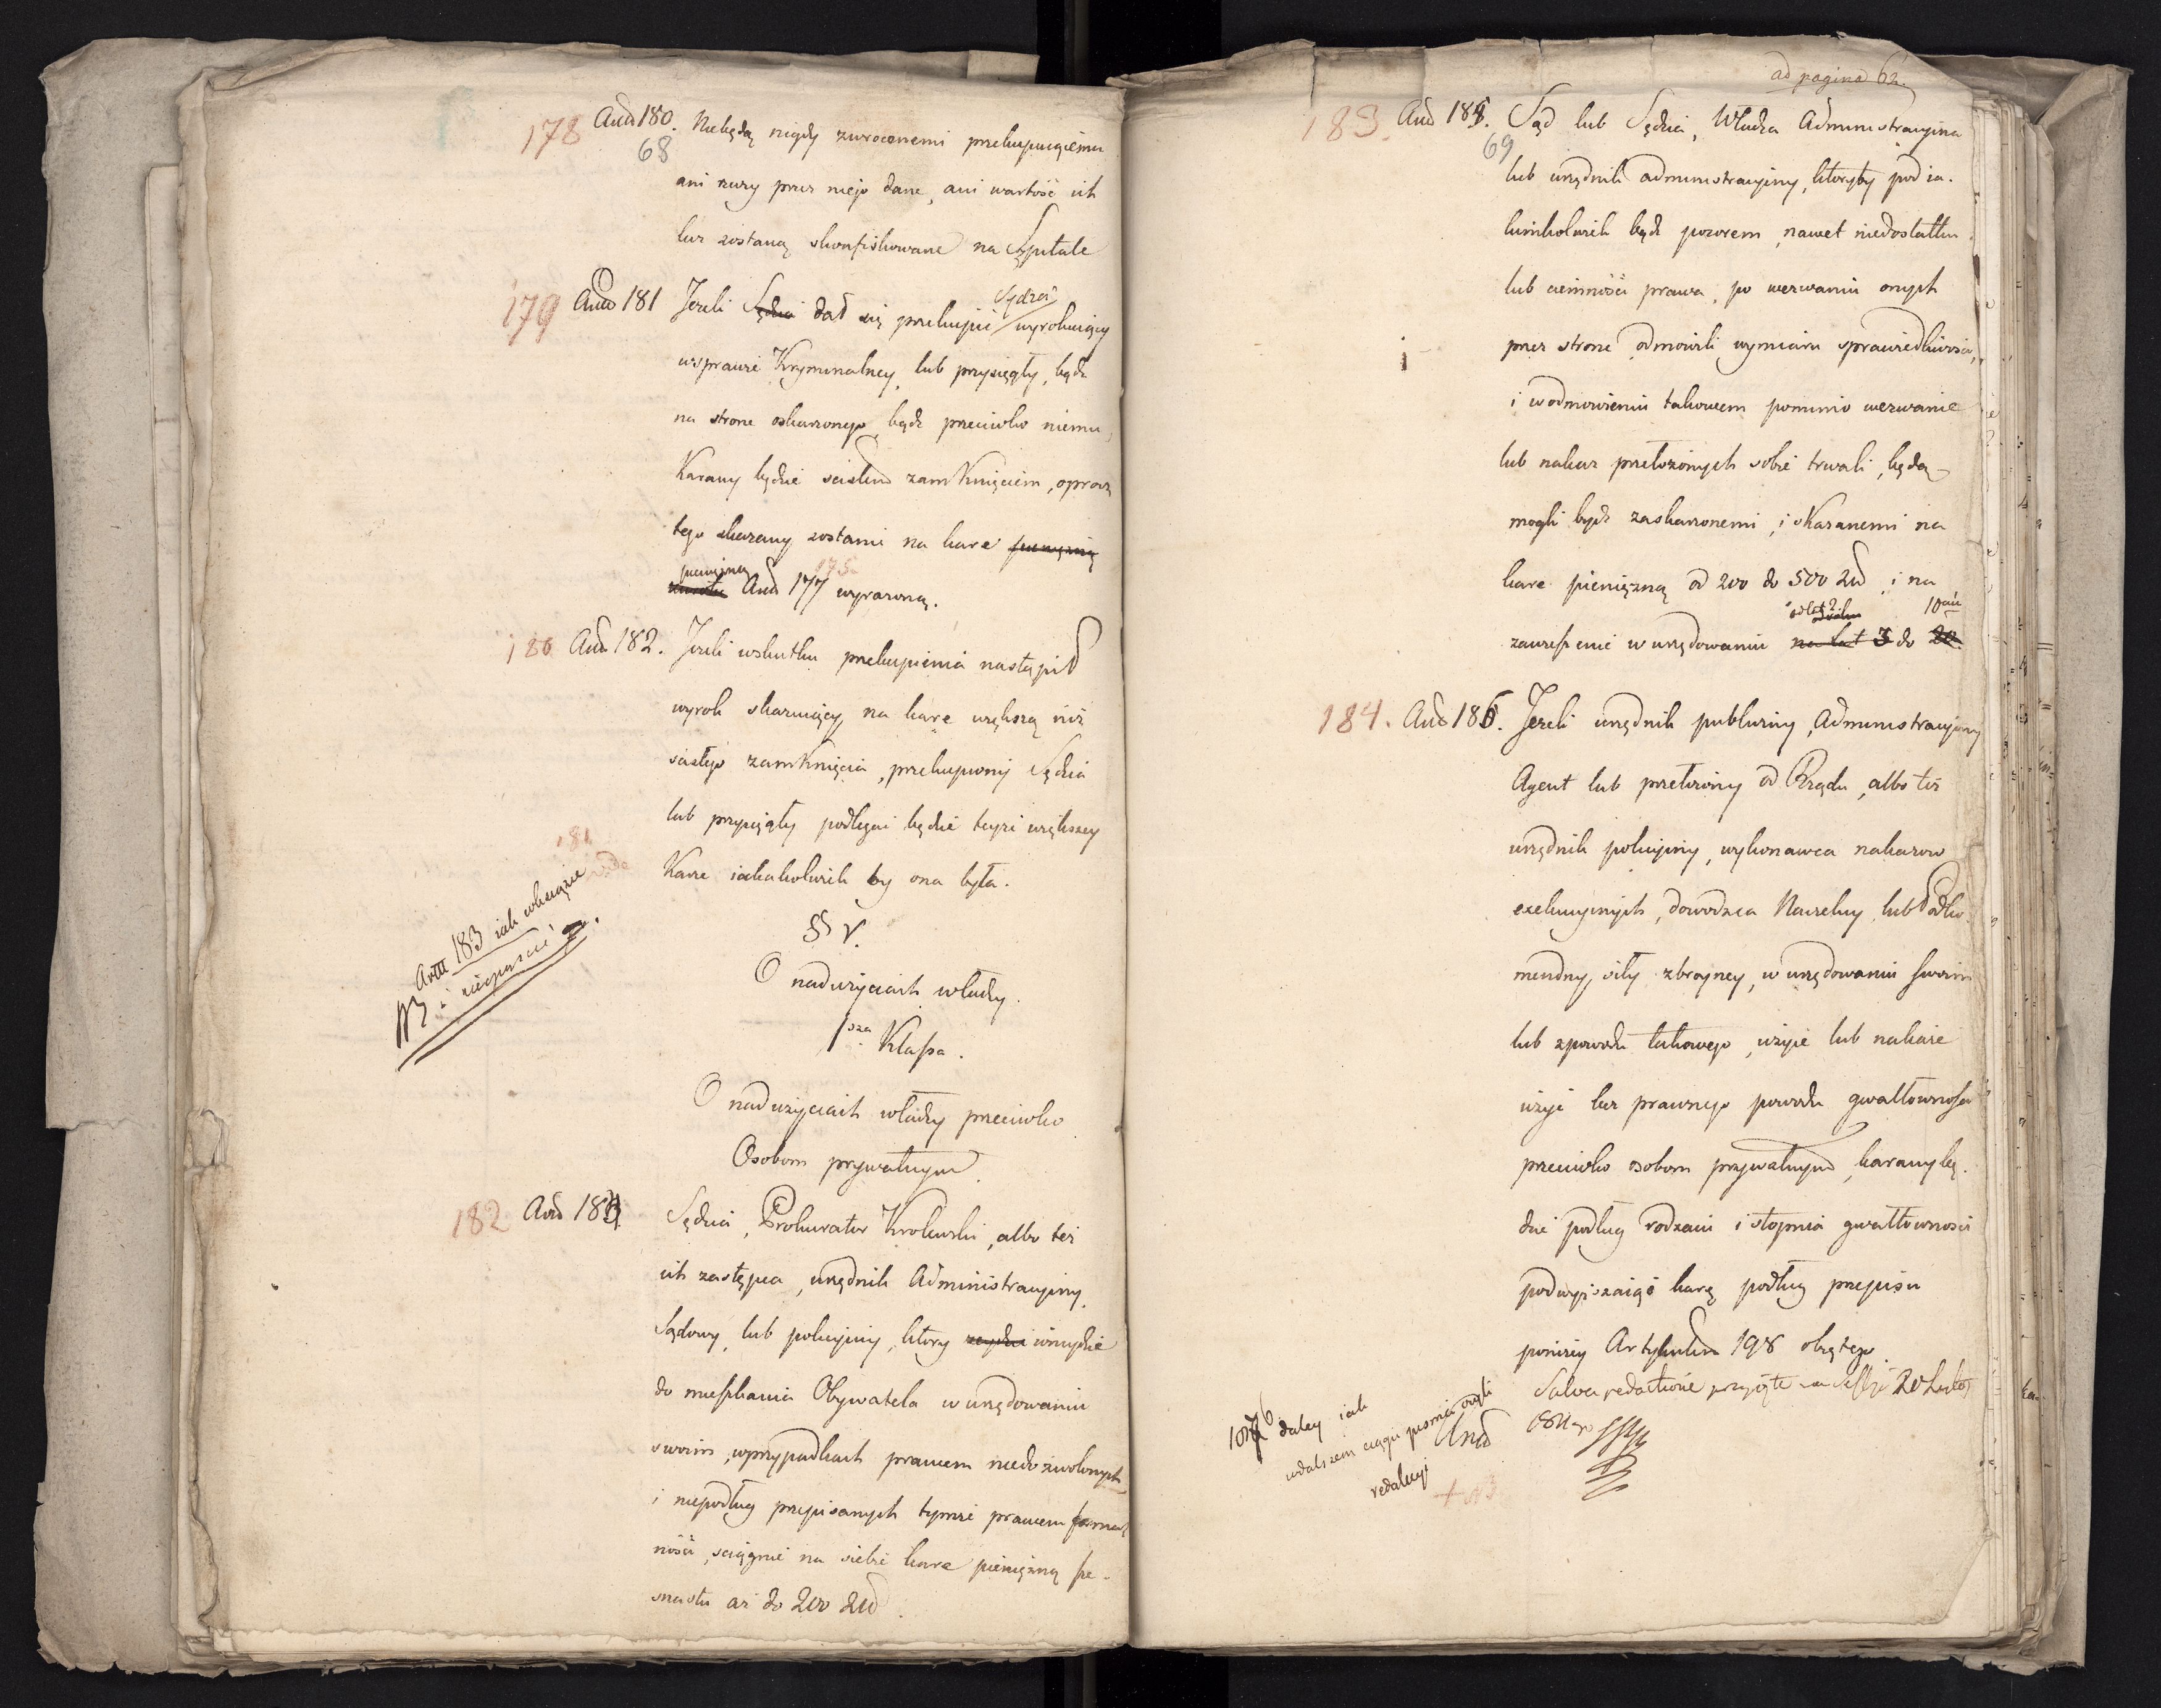 178 Art 180. Niebędą nigdy zwrocenemi przekupuiącemu
68
ani rzeczy przez niego dane, ani wartość ich
lecz zostaną skonfiskowane na Szpitale
179 Art 181 Jeżeli Sędzia dał się przekupić Sędzia wyrokuiący
wsprawie Kryminalney, lub przysięgły, bądź
na strone oskarzonego bądź przeciwko niemu,
Karany będzie scisłem zamknięciem, oprocz
tego skazany zostanie na kare pieniężną
pieniężną Art 177 175 wyrazoną.
180 Art 182. Jeżeli wskutku przekupienia nastąpił
wyrok skazuiący na karę większą niż
scisłego zamknięcia, przekupiony Sędzia
lub przysięgły podlegać będzie teyże większey
Karze iakakolwiek by ona była.
181
NB Art 183 iak wksiążce
i niepuscić
§ V.
O nadużyciach władzy.
1sza Klassa.
O nadużyciach władzy przeciwko
Osobom prywatnym.
182 Art 184 Sędzia, Prokurator Krolewski, albo też
ich zastępca, urzędnik Administracyiny,
Sądowy, lub policyiny, ktory wnydzie
do mieszkania Obywatela w urzędowaniu
swoim, wprzypadkach prawem niedozwolonych
i niepodług przepisanych tymże prawem formal
ności, sciągnie na siebie kare pieniężną sze-
snastu aż do 200 Zł.
ad pagina 62
183. Art 185. Sąd lub Sędzia, Władza Administracyina
69
lub urzędnik administracyiny, ktoryby pod ia-
kimkolwiek bądź pozorem, nawet niedostatku
lub ciemności prawa, po wezwaniu onych
przez strone odmowili wymiaru sprawiedliwości,
i wodmowieniu takowem pomimo wezwanie
lub nakaz przełożonych sobie trwali, będą
mogli bydź zaskarzonemi, i skazanemi na
kare pieniężną od 200 do 500 Zł, i na
zawieszenie w urzędowaniu na lat 3 do 20 10ciu
184. Art 186. Jeżeli urzędnik publiczny, Administracyiny
Agent lub przełożony od Rządu, albo też
urzędnik policyiny, wykonawca nakazow
exekucyinych, dowodzca Naczelny lub Podko-
mendny, siły zbroyney, w urzędowaniu swoim
lub zpowodu takowego, użyie lub nakaże
użyć bez prawnego powodu gwałtowności
przeciwko osobom prywatnym, karany bę-
dzie podług rodzaiu i stopnia gwałtowności
podwyższaiąc karę podług przepisu
poniżey Artykułem 198 obiętego
Salva redactione przyięte na Sessyi 20 Lutego
186 daley iak
wdalszem ciągu pisma czyli
redakcyi
+ NB